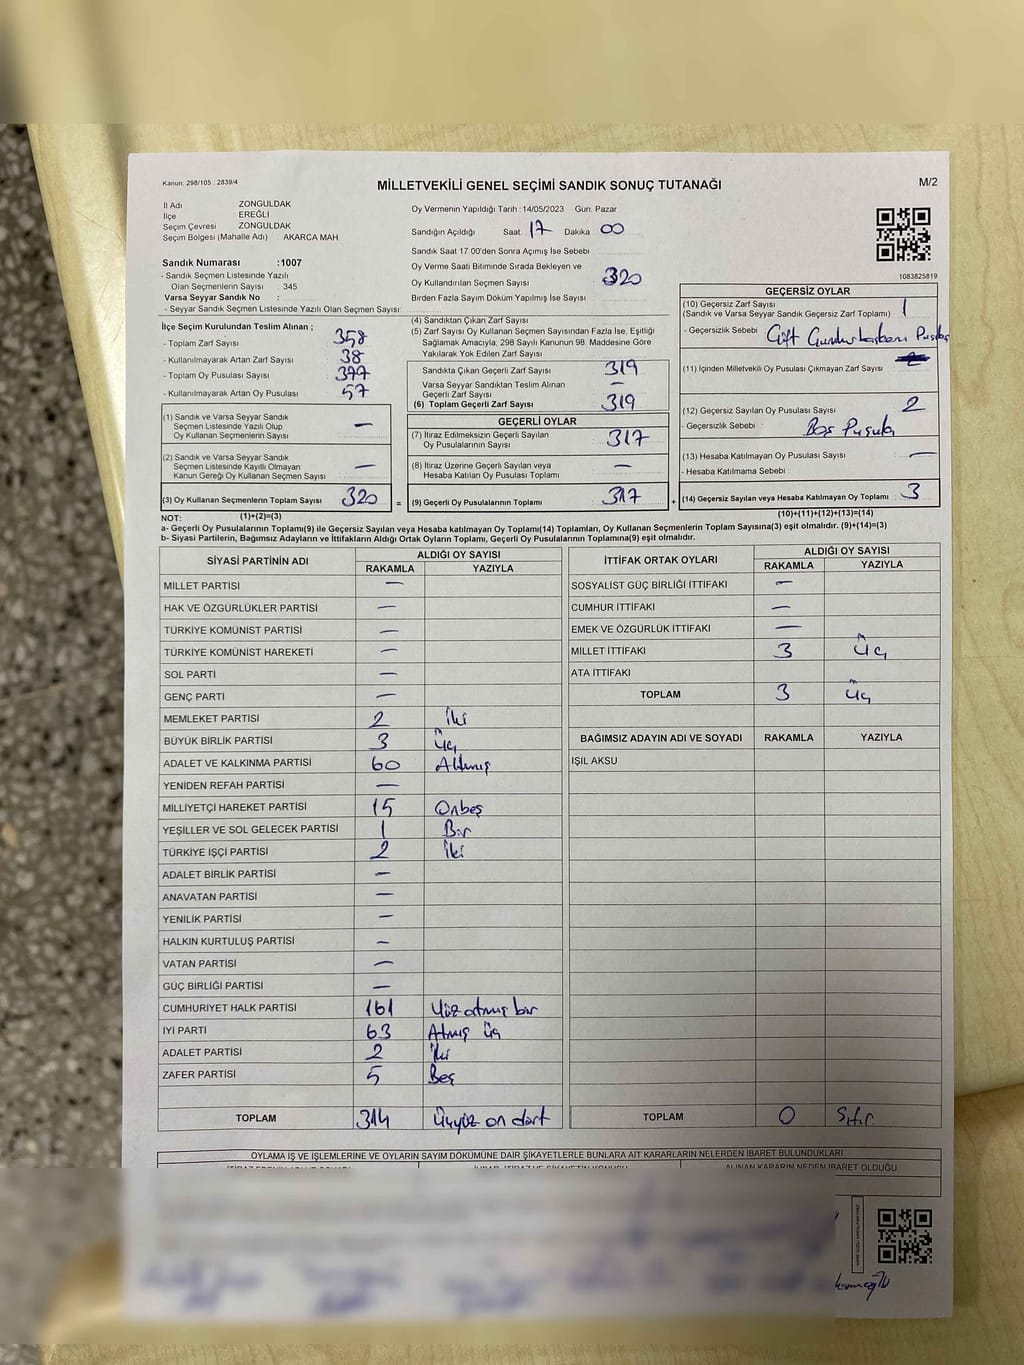 Kanun: 298/105 : 2839/4
MİLLETVEKİLİ GENEL SEÇİMİ SANDIK SONUÇ TUTANAĞI
M/2
İl Adı ZONGULDAK
İlçe EREĞLİ
Seçim Çevresi ZONGULDAK
Seçim Bölgesi (Mahalle Adı) : AKARCA MAH
Sandık Numarası :1007
- Sandık Seçmen Listesinde Yazılı
Olan Seçmenlerin Sayısı : 345
Varsa Seyyar Sandık No :
- Seyyar Sandık Seçmen Listesinde Yazılı Olan Seçmen Sayısı:
Oy Vermenin Yapıldığı Tarih : 14/05/2023 Gün: Pazar
Sandığın Açıldığı Saat: 17 Dakika 00
Sandık Saat 17.00'den Sonra Açımış İse Sebebi
Oy Verme Saati Bitiminde Sırada Bekleyen ve
Oy Kullandırılan Seçmen Sayısı 320
Birden Fazla Sayım Döküm Yapılmış İse Sayısı
1083825819
İlçe Seçim Kurulundan Teslim Alınan ;
- Toplam Zarf Sayısı 358
- Kullanılmayarak Artan Zarf Sayısı 38
- Toplam Oy Pusulası Sayısı 377
- Kullanılmayarak Artan Oy Pusulası 57
(1) Sandık ve Varsa Seyyar Sandık
Seçmen Listesinde Yazılı Olup
Oy Kullanan Seçmenlerin Sayısı —
(2) Sandık ve Varsa Seyyar Sandık
Seçmen Listesinde Kayıtlı Olmayan
Kanun Gereği Oy Kullanan Seçmen Sayısı —
(3) Oy Kullanan Seçmenlerin Toplam Sayısı 320 =
(4) Sandıktan Çıkan Zarf Sayısı
(5) Zarf Sayısı Oy Kullanan Seçmen Sayısından Fazla İse, Eşitliği
Sağlamak Amacıyla, 298 Sayılı Kanunun 98. Maddesine Göre
Yakılarak Yok Edilen Zarf Sayısı
Sandıkta Çıkan Geçerli Zarf Sayısı 319
Varsa Seyyar Sandıktan Teslim Alınan
Geçerli Zarf Sayısı —
(6) Toplam Geçerli Zarf Sayısı 319
GEÇERLİ OYLAR
(7) İtiraz Edilmeksizin Geçerli Sayılan
Oy Pusulalarının Sayısı 317
(8) İtiraz Üzerine Geçerli Sayılan veya
Hesaba Katılan Oy Pusulası Toplamı —
(9) Geçerli Oy Pusulalarının Toplamı 317 +
GEÇERSİZ OYLAR
(10) Geçersiz Zarf Sayısı
(Sandık ve Varsa Seyyar Sandık Geçersiz Zarf Toplamı) 1
- Geçersizlik Sebebi : Çift
(11) İçinden Milletvekili Oy Pusulası Çıkmayan Zarf Sayısı
(12) Geçersiz Sayılan Oy Pusulası Sayısı 2
- Geçersizlik Sebebi : Boş Pusula
(13) Hesaba Katılmayan Oy Pusulası Sayısı —
- Hesaba Katılmama Sebebi :
(14) Geçersiz Sayılan veya Hesaba Katılmayan Oy Toplamı 3
NOT: (1)+(2)=(3) (10)+(11)+(12)+(13)=(14)
a- Geçerli Oy Pusulalarının Toplamı(9) ile Geçersiz Sayılan veya Hesaba katılmayan Oy Toplamı(14) Toplamları, Oy Kullanan Seçmenlerin Toplam Sayısına(3) eşit olmalıdır. (9)+(14)=(3)
b- Siyasi Partilerin, Bağımsız Adayların ve İttifakların Aldığı Ortak Oyların Toplamı, Geçerli Oy Pusulalarının Toplamına(9) eşit olmalıdır.
SİYASİ PARTİNİN ADI ALDIĞI OY SAYISI
RAKAMLA YAZIYLA
MİLLET PARTİSİ —
HAK VE ÖZGÜRLÜKLER PARTİSİ —
TÜRKİYE KOMÜNİST PARTİSİ —
TÜRKİYE KOMÜNİST HAREKETİ —
SOL PARTİ —
GENÇ PARTİ —
MEMLEKET PARTİSİ 2 İki
BÜYÜK BİRLİK PARTİSİ 3 Üç
ADALET VE KALKINMA PARTİSİ 60 Altmış
YENİDEN REFAH PARTİSİ —
MİLLİYETÇİ HAREKET PARTİSİ 15 Onbeş
YEŞİLLER VE SOL GELECEK PARTİSİ 1 Bir
TÜRKİYE İŞÇİ PARTİSİ 2 İki
ADALET BİRLİK PARTİSİ —
ANAVATAN PARTİSİ —
YENİLİK PARTİSİ —
HALKIN KURTULUŞ PARTİSİ —
VATAN PARTİSİ —
GÜÇ BİRLİĞİ PARTİSİ —
CUMHURİYET HALK PARTİSİ 161 Yüz atmış bir
İYİ PARTİ 63 Atmış üç
ADALET PARTİSİ 2 İki
ZAFER PARTİSİ 5 Beş
TOPLAM 314 Üçyüz on dört
İTTİFAK ORTAK OYLARI ALDIĞI OY SAYISI
RAKAMLA YAZIYLA
SOSYALİST GÜÇ BİRLİĞİ İTTİFAKI —
CUMHUR İTTİFAKI —
EMEK VE ÖZGÜRLÜK İTTİFAKI —
MİLLET İTTİFAKI 3 Üç
ATA İTTİFAKI
TOPLAM 3 Üç
BAĞIMSIZ ADAYIN ADI VE SOYADI RAKAMLA YAZIYLA
IŞIL AKSU
TOPLAM 0 Sıfır
OYLAMA İŞ VE İŞLEMLERİNE VE OYLARIN SAYIM DÖKÜMÜNE DAİR ŞİKAYETLERLE BUNLARA AİT KARARLARIN NELERDEN İBARET BULUNDUKLARI
ALINAN KARARIN NEDEN İBARET OLDUĞU